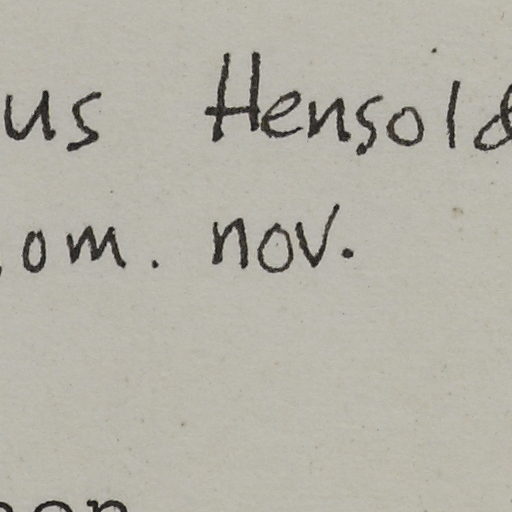 us Hensold
om. nov.